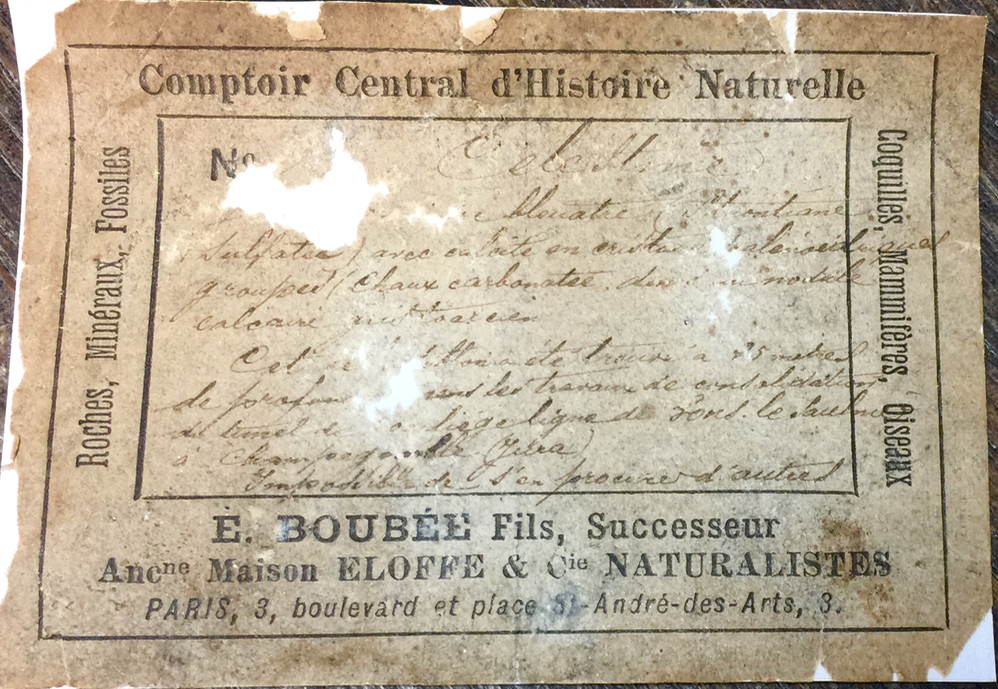 Comptoir Central d'Histoire Naturelle
Roches, Minéraux, Fossiles
Coquilles, Mammifères, Oiseaux
No
Celestine
bleuatre (Strontiane
Sulfatée) avec en
groupés (Chaux carbonatée dans un nodule
calcaire
Cet a été trouvé à 25 metres
de les travaux de consolidation
du tunnel de ligne de Lons le Saulnier
à Champagnolle (Jura)
Impossible de s'en procurer d'autres
E. BOUBÉE Fils, Successeur
Ancne Maison ELOFFE & Cie NATURALISTES
PARIS, 3, boulevard et place St-André-des-Arts, 3.